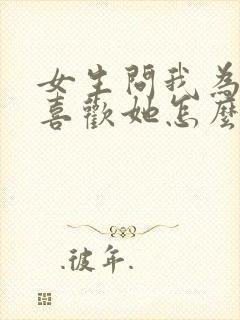 女生問我為
喜歡她怎麼
.彼年.